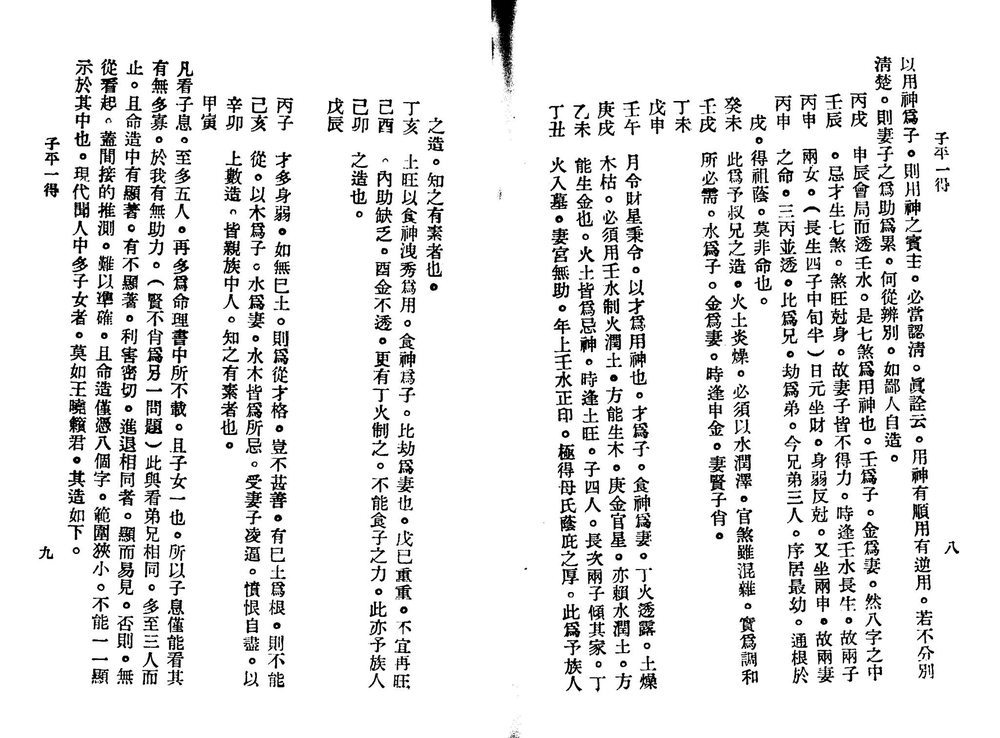 子平一得
八
以用神爲子。則用神之賓主。必當認清。眞詮云。用神有順用有逆用。若不分別
清楚。則妻子之爲助爲累。何從辨別。如鄙人自造。
丙戌 申辰會局而透壬水。是七煞爲用神也。壬爲子。金爲妻。然八字之中
壬辰 。忌才生七煞。煞旺尅身。故妻子皆不得力。時逢壬水長生。故兩子
丙申 兩女。(長生四子中旬半)日元坐財。身弱反尅。又坐兩申。故兩妻
丙申 之命。三丙並透。比爲兄。劫爲弟。今兄弟三人。序居最幼。通根於
戌。得祖蔭。莫非命也。
癸未 此爲予叔兄之造。火土炎燥。必須以水潤澤。官煞雖混雜。實爲調和
壬戌 所必需。水爲子。金爲妻。時逢申金。妻賢子肖。
丁未
戊申
壬午 月令財星秉令。以才爲用神也。才爲子。食神爲妻。丁火透露。土燥
庚戌 木枯。必須用壬水制火潤土。方能生木。庚金官星。亦賴水潤土。方
乙未 能生金也。火土皆爲忌神。時逢土旺。子四人。長次兩子傾其家。丁
丁丑 火入墓。妻宮無助。年上壬水正印。極得母氏蔭庇之厚。此爲予族人
之造。知之有素者也。
丁亥 土旺以食神洩秀爲用。食神爲子。比劫爲妻也。戊巳重重。不宜再旺
己酉 。內助缺乏。酉金不透。更有丁火制之。不能食子之力。此亦予族人
己卯 之造也。
戊辰
丙子 才多身弱。如無巳土。則爲從才格。豈不甚善。有巳土爲根。則不能
己亥 從。以木爲子。水爲妻。水木皆爲所忌。受妻子凌逼。憤恨自盡。以
辛卯 上數造。皆親族中人。知之有素者也。
甲寅
凡看子息。至多五人。再多爲命理書中所不載。且子女一也。所以子息僅能看其
有無多寡。於我有無助力。(賢不肖爲另一問題)此與看弟兄相同。多至三人而
止。且命造中有顯著。有不顯著。利害密切。進退相同者。顯而易見。否則。無
從看起。蓋間接的推測。難以準確。且命造僅憑八個字。範圍狹小。不能一一顯
示於其中也。現代聞人中多子女者。莫如王曉籟君。其造如下。
子平一得
九